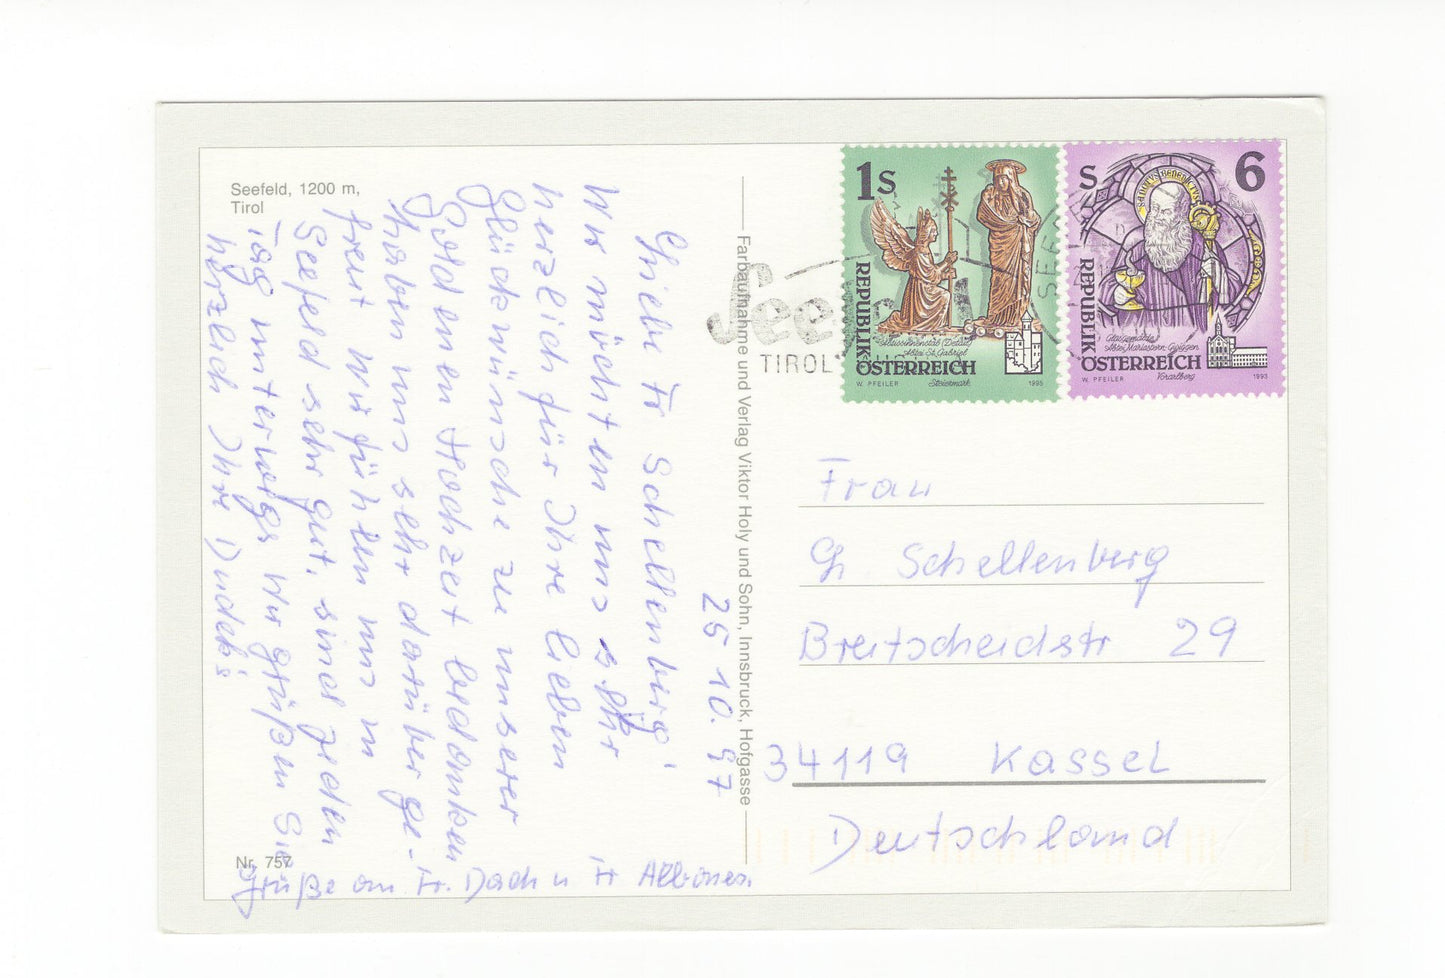 Seefeld, 1200 m,
Tirol
25 10. 97
Liebe Fr Schellenberg!
Wir möchten uns sehr
herzlich für Ihre lieben
Glückwünsche zu unserer
Goldenen Hochzeit bedanken
Haben uns sehr darüber ge-
freut Wir fühlen uns in
Seefeld sehr gut, sind jeden
Tag unterwegs Wir grüßen Sie
herzlich Ihre Dudek's
Grüße an Fr. Dach u Fr
Nr. 757
Farbaufnahme und Verlag Viktor Holy und Sohn, Innsbruck, Hofgasse
1 S
REPUBLIK
ÖSTERREICH
Abtei St. Gabriel
Steiermark
W. PFEILER
1995
S 6
SANCTVS BENEDICTVS
REPUBLIK
ÖSTERREICH
Glasgemälde
Abtei Mariastern-Gwiggen
Vorarlberg
W. PFEILER
1993
See
TIROL
SEE
Frau
G. Schellenberg
Breitscheidstr 29
34119 Kassel
Deutschland